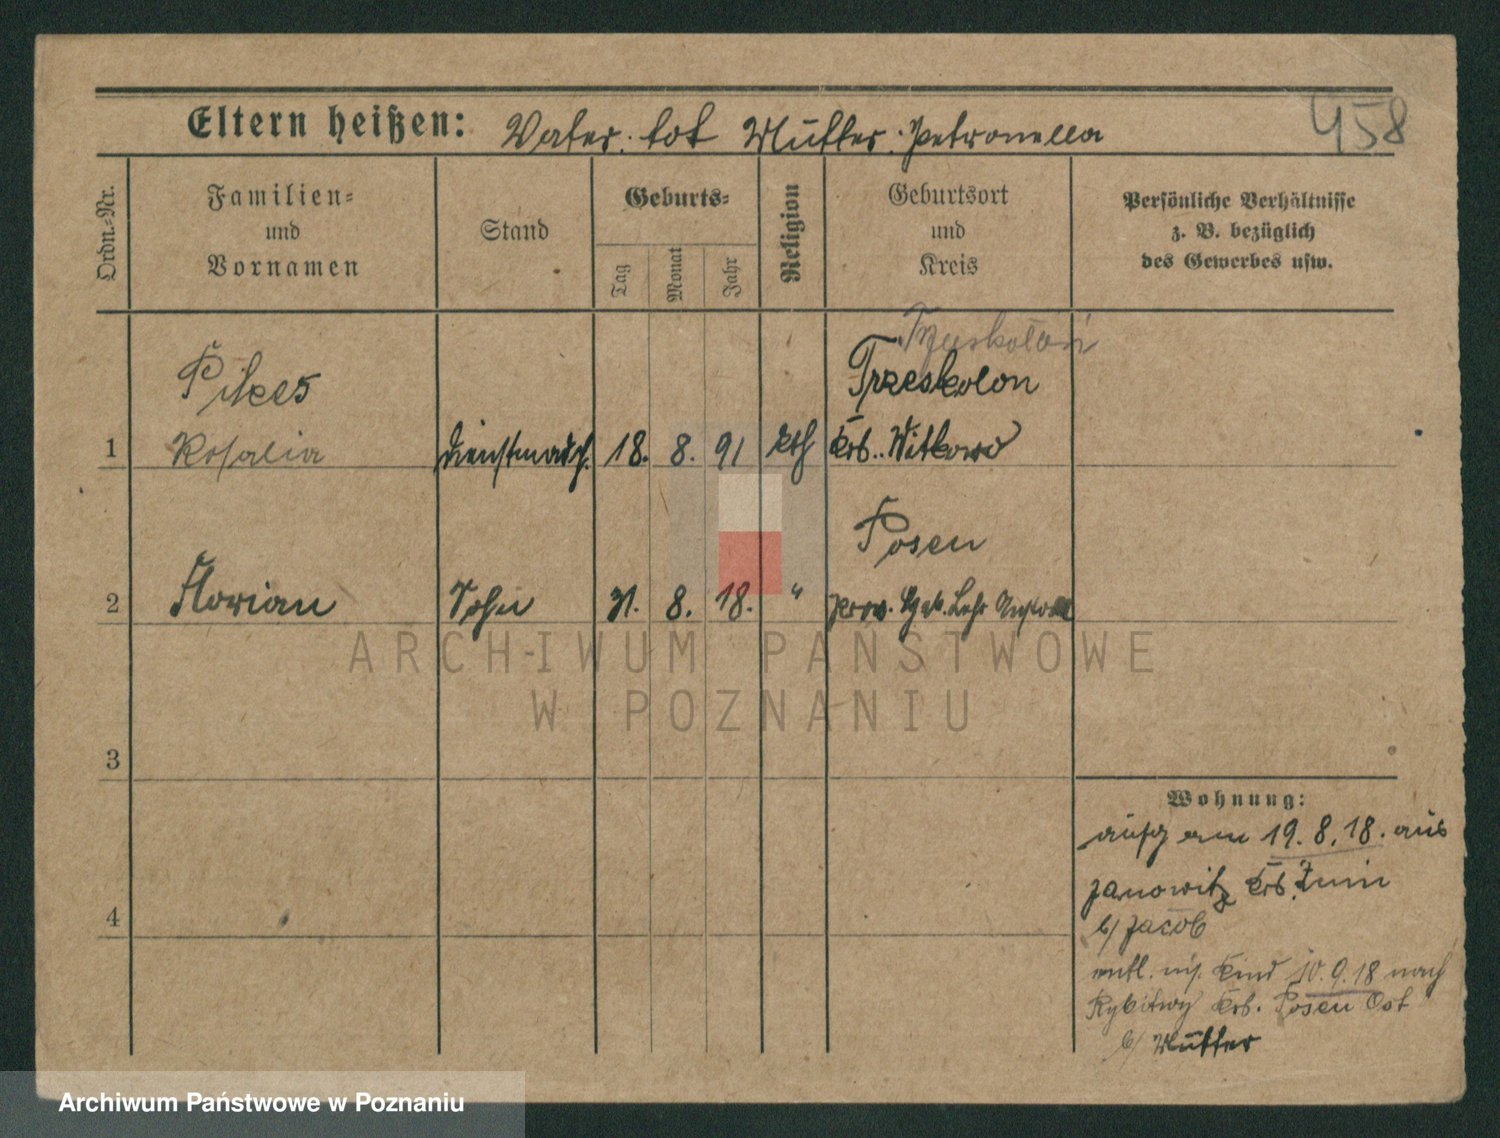 458
Eltern heißen: Vater tot Mutter Petronella
Ordn.-Nr.
Familien-
und
Vornamen
Stand
Geburts-
Tag
Monat
Jahr
Religion
Geburtsort
und
Kreis
Persönliche Verhältnisse
z. B. bezüglich
des Gewerbes usw.
Trzeskolon
1 Rosalia Dienstmädch. 18. 8. 91 kth Krs. Witkowo
Posen
2 Florian Sohn 31. 8. 18. "
3
4
Wohnung:
aufg am 19.8.18. aus
Janowitz Krs. Znin
b/ Jacob
entl. m. Kind 10.9.18 nach
Rybitwy Krs. Posen Ost
b/ Mutter
ARCHIWUM PAŃSTWOWE
W POZNANIU
Archiwum Państwowe w Poznaniu